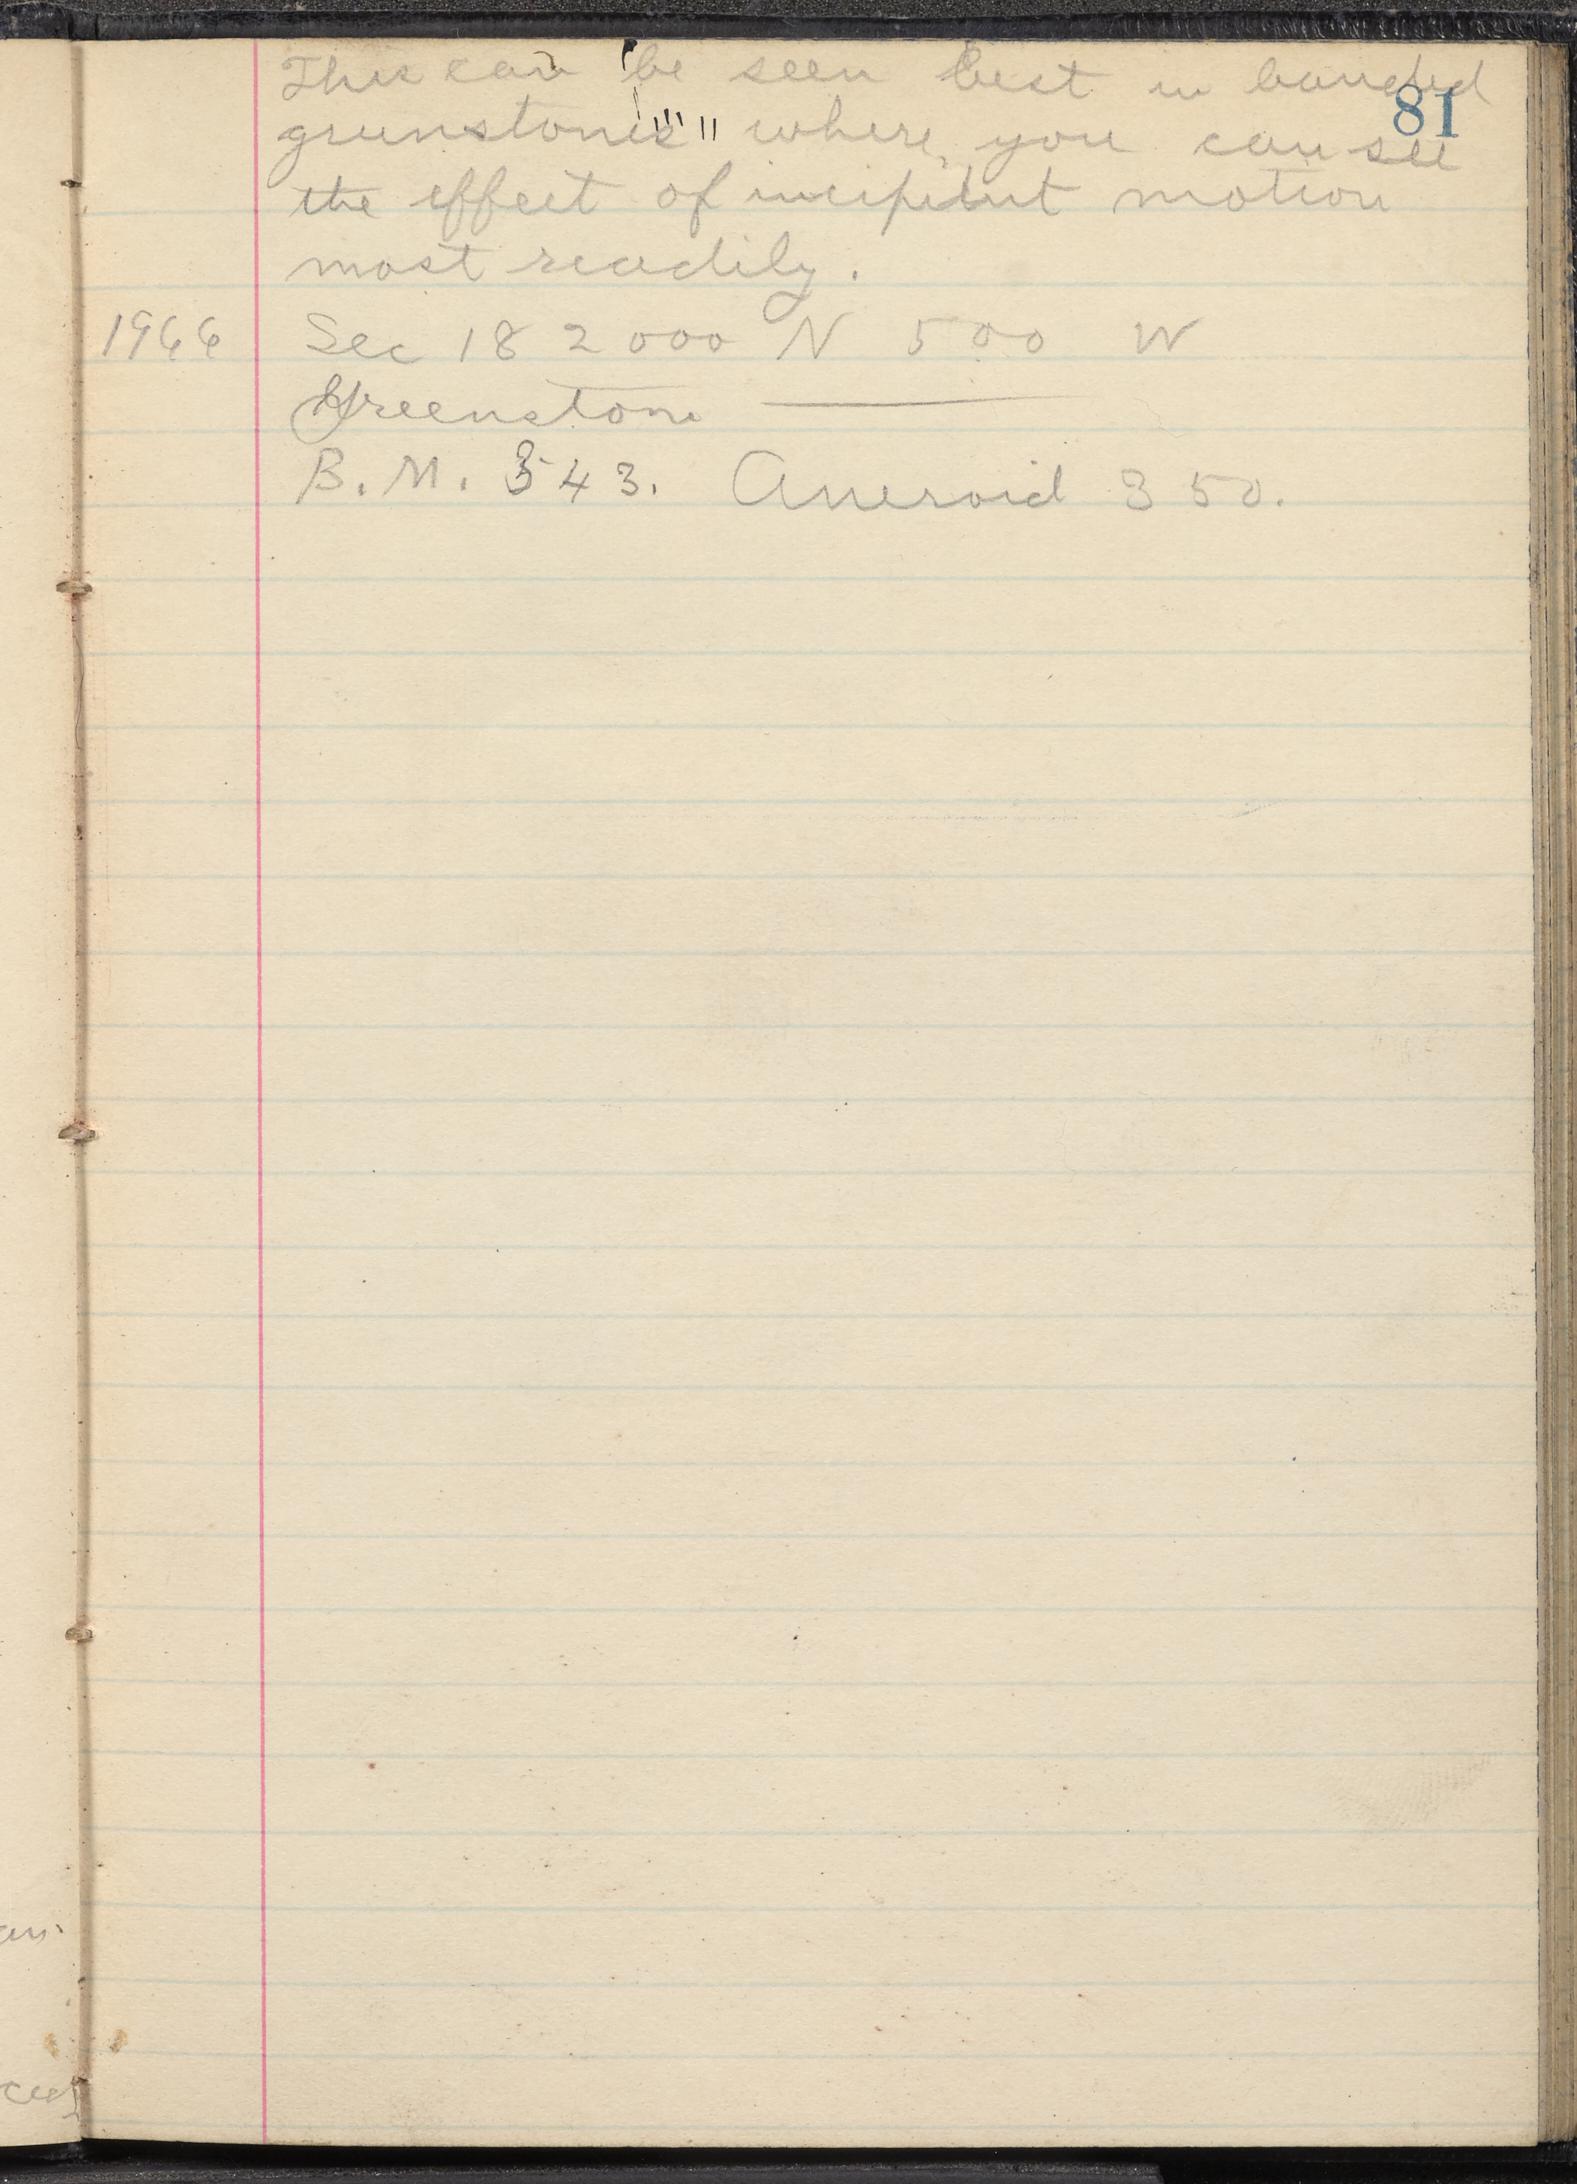 81
This can be seen best in banded
greenstones where you can see
the effect of incipient motion
most readily.
1966 Sec 18 2000 N 500 W
Greenstone
B.M. 343. Aneroid 350.